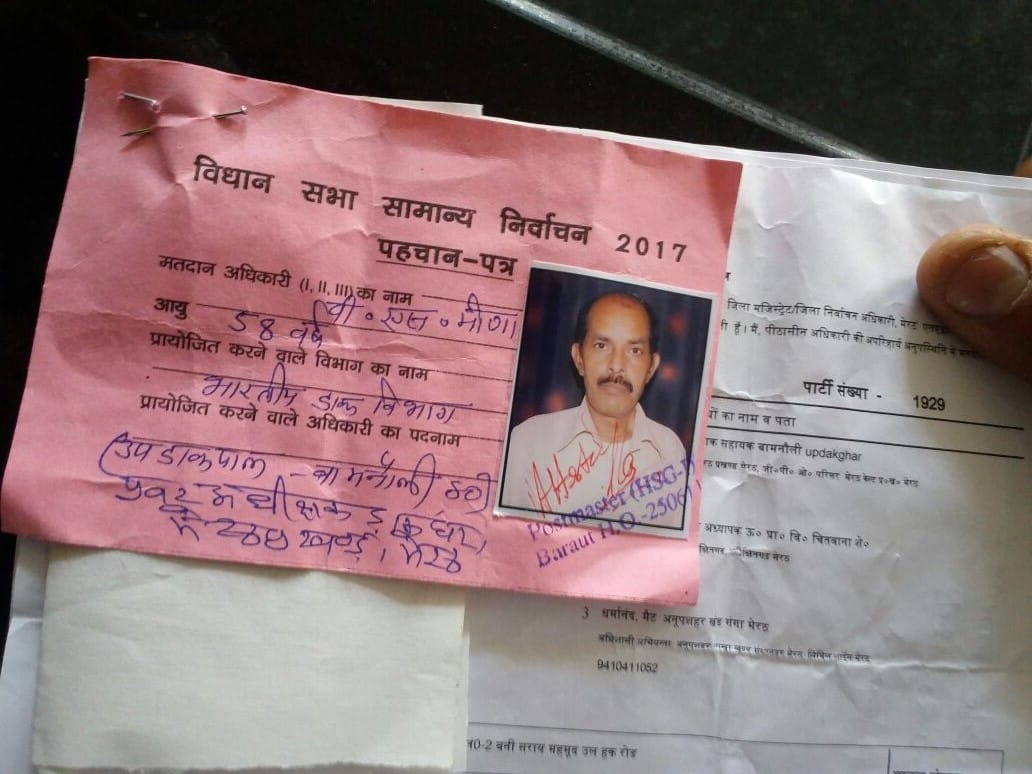 विधान सभा सामान्य निर्वाचन 2017
पहचान-पत्र
मतदान अधिकारी (I, II, III) का नाम
वी. एस. मीणा
आयु 58 वर्ष
प्रायोजित करने वाले विभाग का नाम
भारतीय डाक विभाग
प्रायोजित करने वाले अधिकारी का पदनाम
उपडाकपाल - बामनौली
मेरठ
Attested
Postmaster (HSG-I)
Baraut H.O.-25061
जिला मजिस्ट्रेट/जिला निर्वाचन अधिकारी, मेरठ
ी है। मैं, पीठासीन अधिकारी की अपरिहार्य अनुपस्थिति में
पार्टी संख्या - 1929
यों का नाम व पता
क सहायक बामनौली updakghar
अध्यापक ऊ० प्रा० वि० चितवाना शे०
3 धर्मानंद, मैट अनूपशहर खंड गंगा मेरठ
9410411052
न0-2 बनी सराय महमूद उल हक रोड